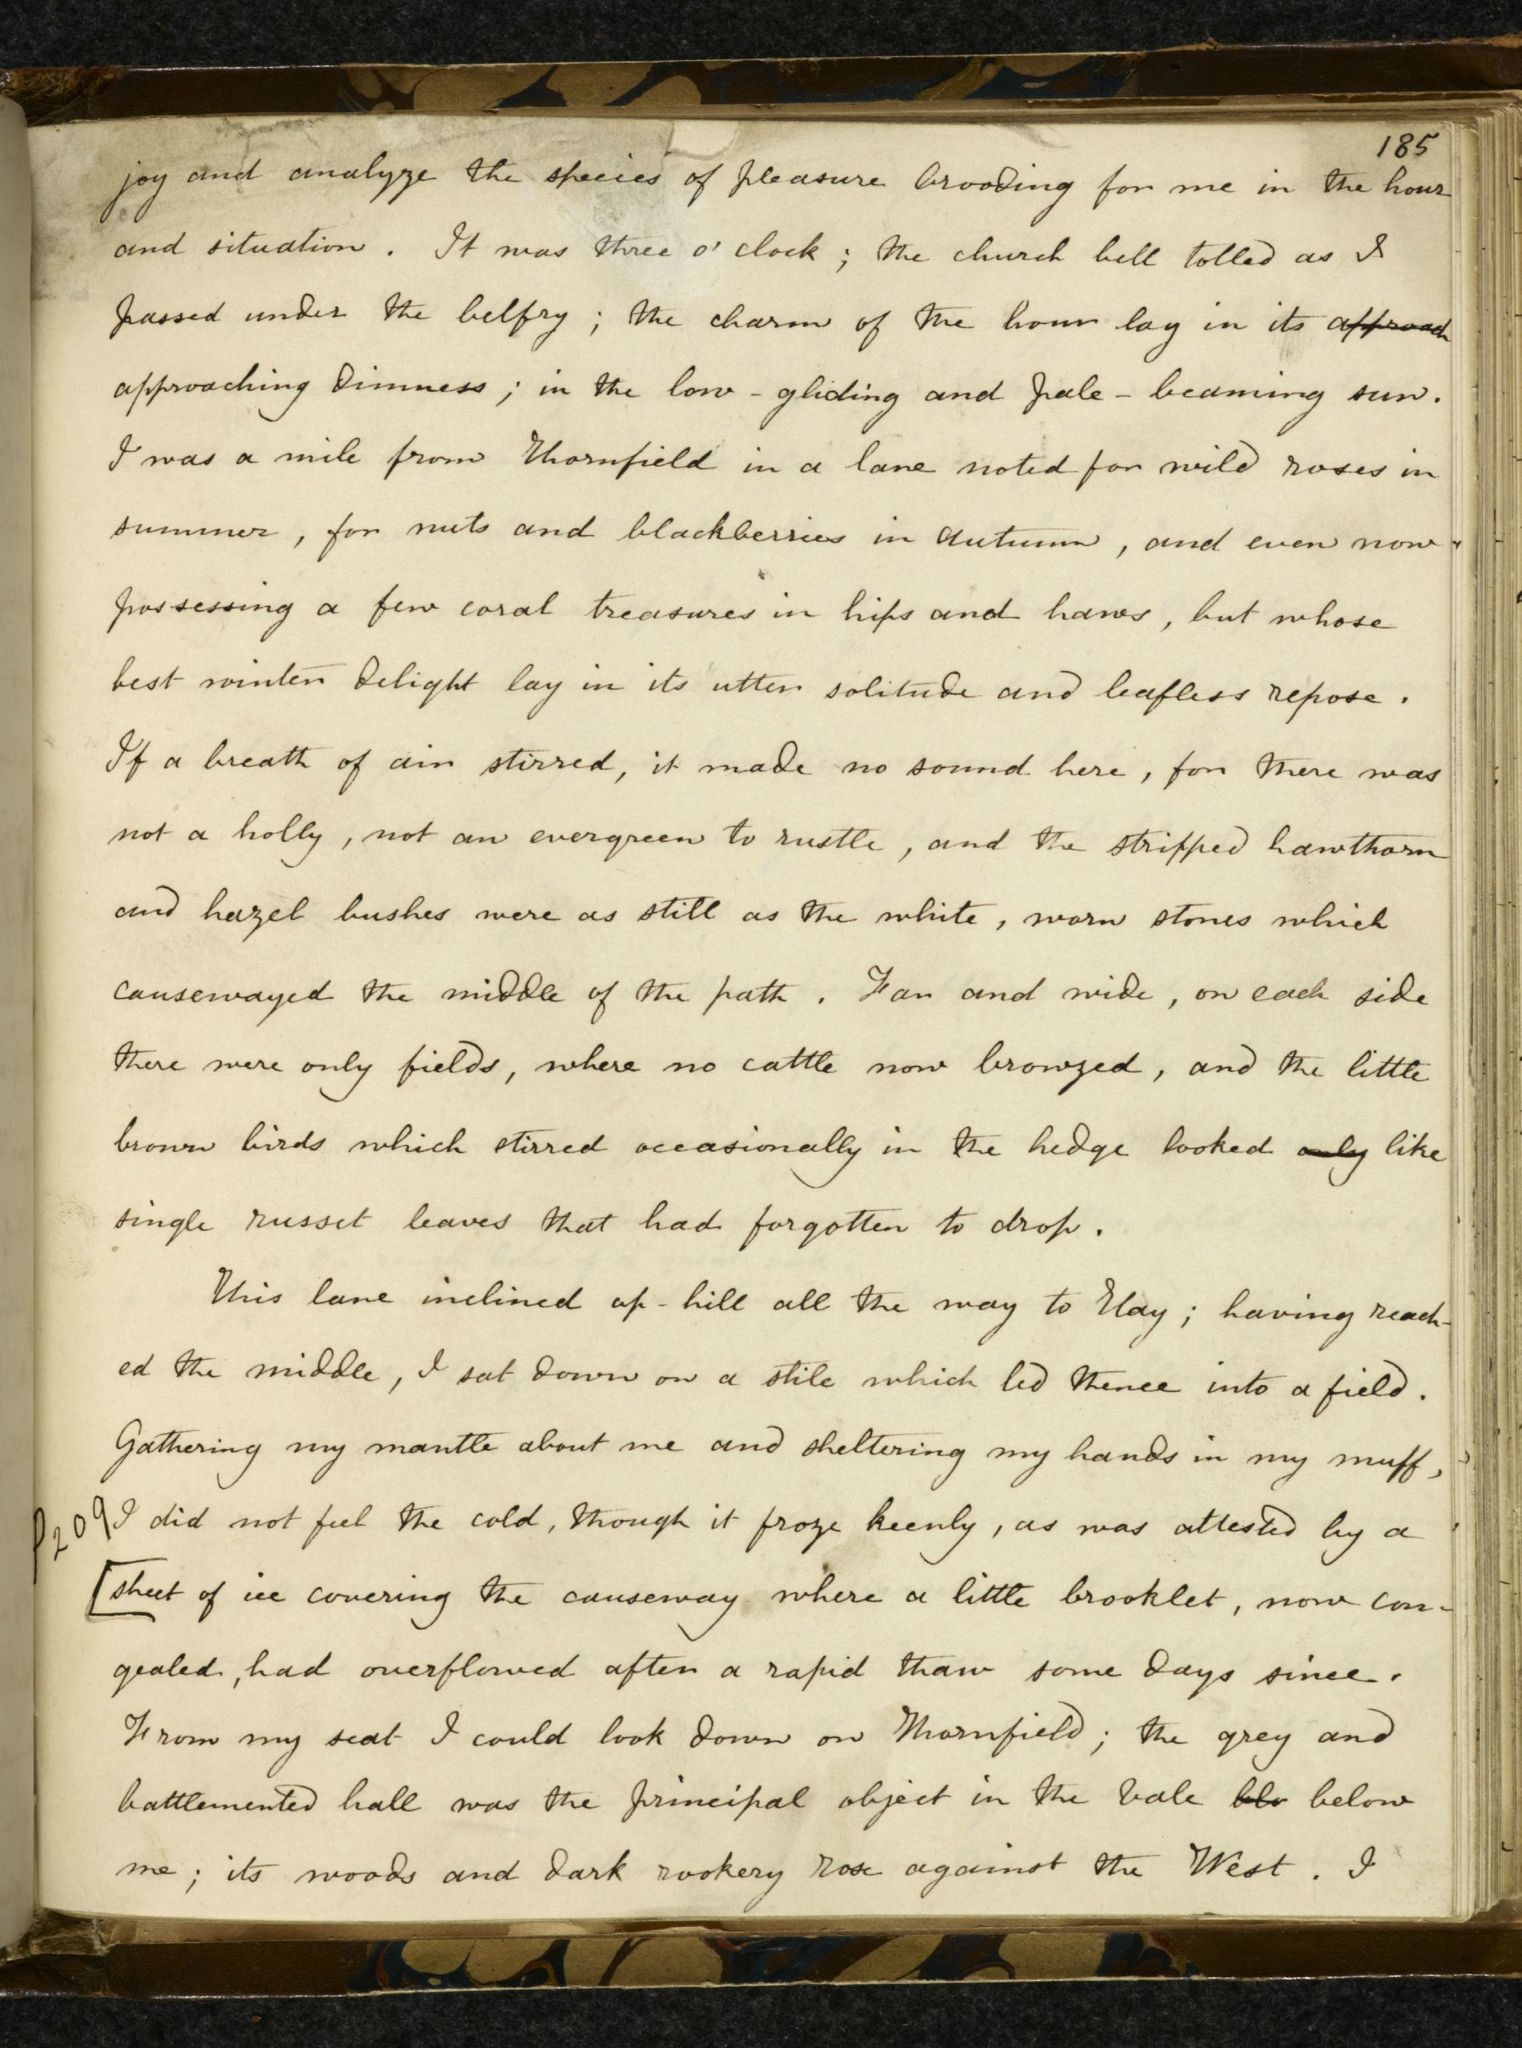 185
joy and analyze the species of pleasure brooding for me in the hour
and situation. It was three o'clock; the church bell tolled as I
passed under the belfry; the charm of the hour lay in its approach
approaching dimness; in the low-gliding and pale-beaming sun.
I was a mile from Thornfield in a lane noted for wild roses in
summer, for nuts and blackberries in autumn, and even now
possessing a few coral treasures in hips and haws, but whose
best winter delight lay in its utter solitude and leafless repose.
If a breath of air stirred, it made no sound here, for there was
not a holly, not an evergreen to rustle, and the stripped hawthorn
and hazel bushes were as still as the white, worn stones which
causewayed the middle of the path. Far and wide, on each side
there were only fields, where no cattle now browzed, and the little
brown birds which stirred occasionally in the hedge looked only like
single russet leaves that had forgotten to drop.
This lane inclined up-hill all the way to Hay; having reach-
ed the middle, I sat down on a stile which led thence into a field.
Gathering my mantle about me and sheltering my hands in my muff,
P209 I did not feel the cold, though it froze keenly, as was attested by a
[sheet of ice covering the causeway where a little brooklet, now con-
gealed, had overflowed after a rapid thaw some days since.
From my seat I could look down on Thornfield; the grey and
battlemented hall was the principal object in the vale blo below
me; its woods and dark rookery rose against the West. I